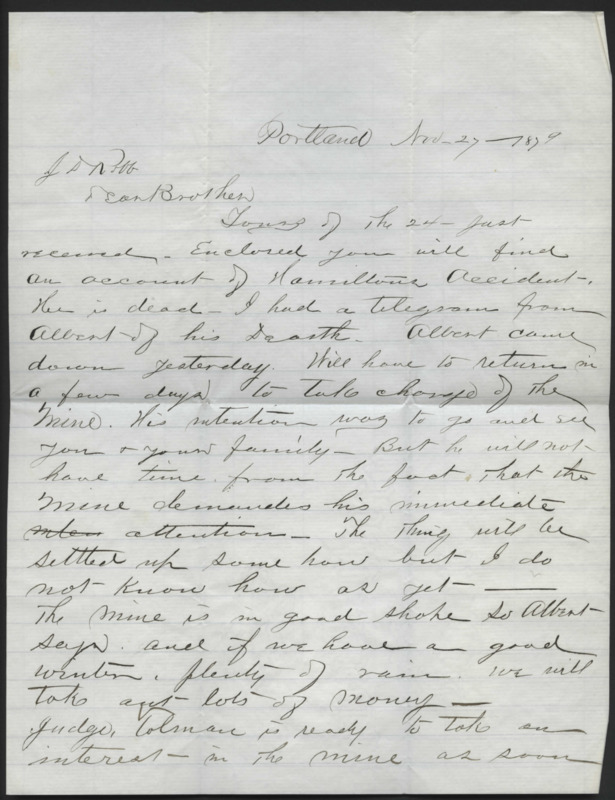 Portland Nov- 27 - 1879
J D Robb
Dear Brother
Yours of the 24 - just
received - Enclosed you will find
an account of Hamiltons Accident -
He is dead - I had a telegram from
Albert of his Death. Albert came
down yesterday. Will have to return in
a few days to take charge of the
Mine. His intention was to go and see
you & your family - But he will not
have time from the fact that the
Mine demandes his immediate
attention - The thing will be
settled up some how but I do
not know how as yet -
The mine is in good shape so Albert
says. and if we have a good
winter, plenty of rain. we will
take out lots of money -
Judge, Colman is ready to take an
interest - in the mine as soon